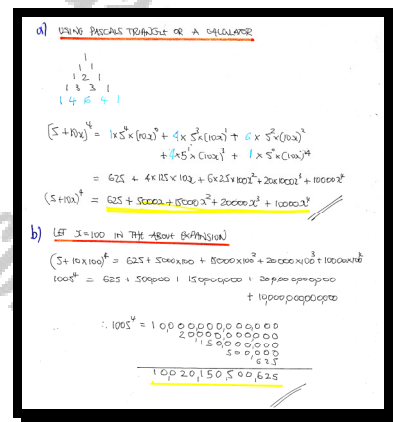 a) USING PASCALS TRIANGLE OR A CALCULATOR
1
1 1
1 2 1
1 3 3 1
1 4 6 4 1
(5+10x)⁴ = 1×5⁴×(10x)⁰ + 4×5³×(10x)¹ + 6×5²×(10x)²
+ 4×5¹×(10x)³ + 1×5⁰×(10x)⁴
= 625 + 4×125×10x + 6×25×100x² + 20×1000x³ + 10000x⁴
(5+10x)⁴ = 625 + 5000x + 15000x² + 20000x³ + 10000x⁴
b) LET x=100 IN THE ABOVE EXPANSION
(5+10×100)⁴ = 625 + 5000×100 + 15000×100² + 20000×100³ + 10000×100⁴
1005⁴ = 625 + 500,000 + 150,000,000 + 20,000,000,000
+ 10,000,000,000,000
∴ 1005⁴ = 10,000,000,000,000
20,000,000,000
150,000,000
500,000
625
1,020,150,500,625